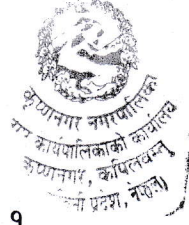 कृष्णनगर नगरपालिका
नगर कार्यपालिकाको कार्यालय
कृष्णनगर, कपिलवस्तु
प्रदेश, नेपाल
१